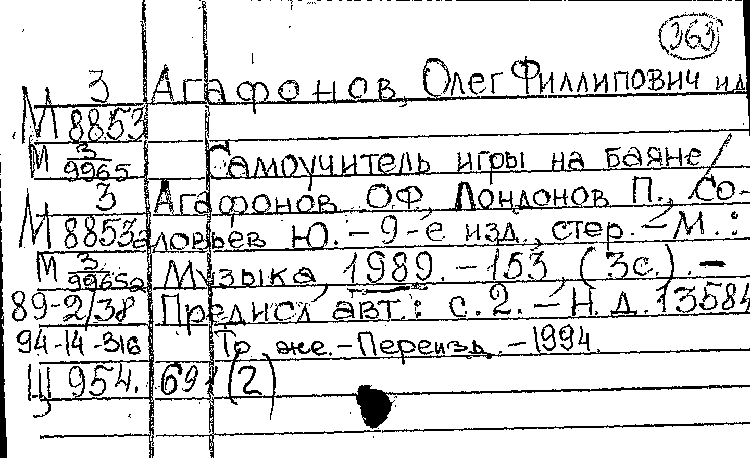 363
З Агафонов, Олег Филлипович и др
М 8853
М З/9965 Самоучитель игры на баяне /
З Агафонов О.Ф., Лондонов П., Со-
М 8853а ловьёв Ю. – 9-е изд., стер. – М. :
М З/9965а Музыка, 1989. – 153, (3с.). –
89-2/38 Предисл авт.: с. 2. – Н.д. 13584
94-14-316 То же. – Переизд. – 1994.
Щ 954. 691 (2)